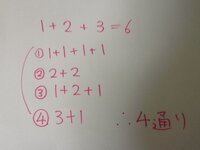 1+2+3=6
① 1+1+1+1
② 2+2
③ 1+2+1
④ 3+1 ∴4通り